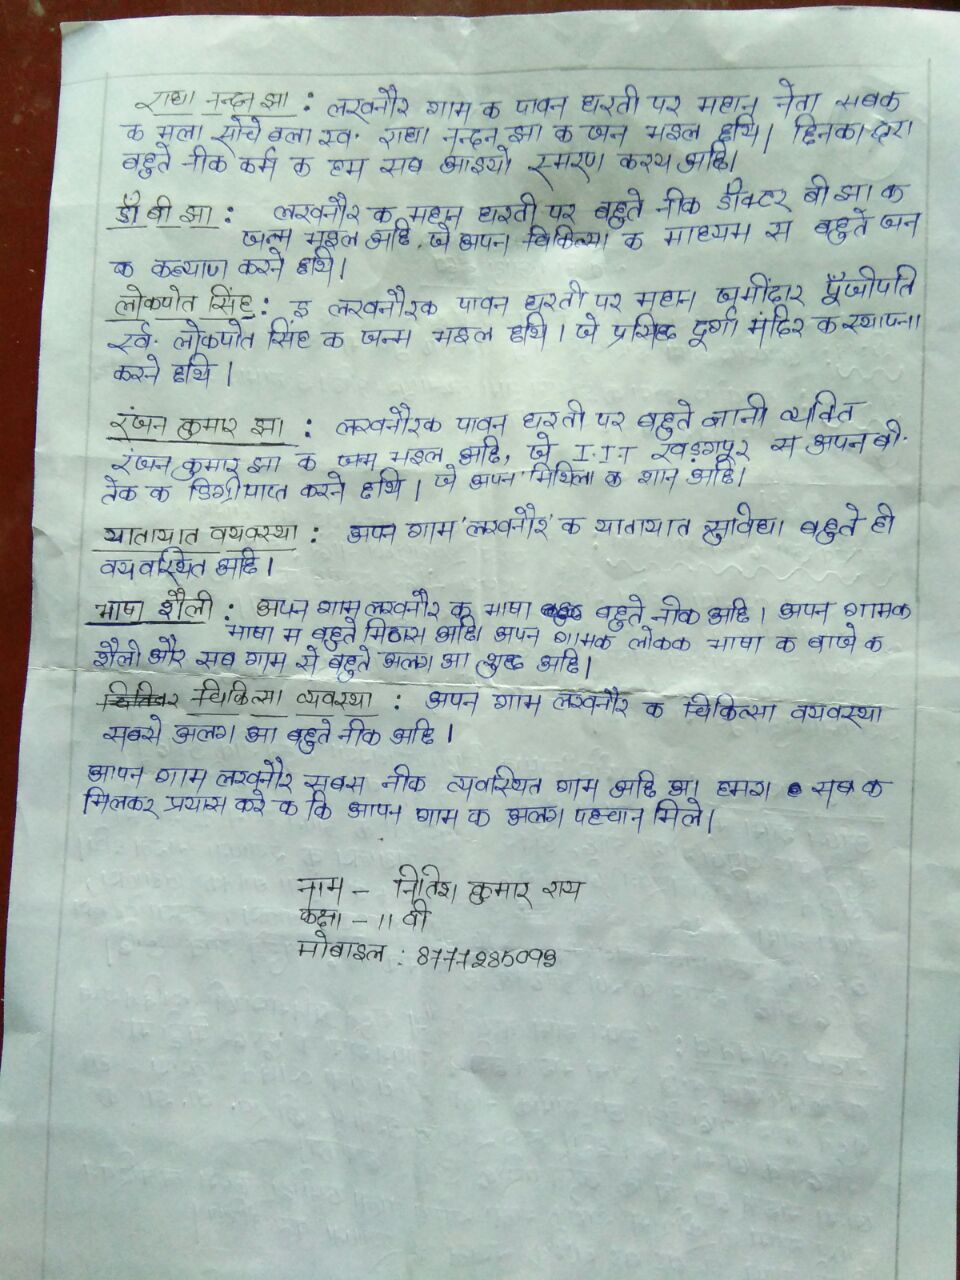 राधा नन्दन झा : लखनौर गाम क पावन धरती पर महान नेता सबक
क भला सोचे वला स्व. राधा नन्दन झा क जन्म भइल हथि। हिनका द्वारा
बहुते नीक कर्म क हम सब आइयो स्मरण करय अछि।
डॉ बी झा : लखनौर क महान धरती पर बहुते नीक डॉक्टर बी झा क
जन्म भइल अछि, जे अपन चिकित्सा क माध्यम स बहुते जन
क कल्याण करने हथि।
लोकपोत सिंह : इ लखनौरक पावन धरती पर महान जमींदार पूँजीपति
स्व. लोकपोत सिंह क जन्म भइल हथि। जे प्रसिद्ध दूर्गा मंदिर क स्थापना
करने हथि।
रंजन कुमार झा : लखनौरक पावन धरती पर बहुते ज्ञानी व्यक्ति
रंजन कुमार झा क जन्म भइल अछि, जे I.I.T खड़गपूर स अपन बी.
टेक क डिग्री प्राप्त करने हथि। जे अपन मिथिला क शान अछि।
यातायात वयवस्था : अपन गाम 'लखनौर' क यातायात सुविधा बहुते ही
वयवस्थित अछि।
भाषा शैली : अपन गाम लखनौर क भाषा बहुते नीक अछि। अपन गामक
भाषा म बहुते मिठास अछि। अपन गामक लोकक भाषा क बाजे क
शैली और सब गाम से बहुते अलग आ शुद्ध अछि।
चिकित्सा व्यवस्था : अपन गाम लखनौर क चिकित्सा वयवस्था
सबसे अलग आ बहुते नीक अछि।
आपन गाम लखनौर सबस नीक व्यवस्थित गाम अछि आ हमरा सब क
मिलकर प्रयास करे क कि आपन गाम क अलग पहचान मिले।
नाम - नितिश कुमार राय
कक्षा - 11 वी
मोबाइल : 8777285093